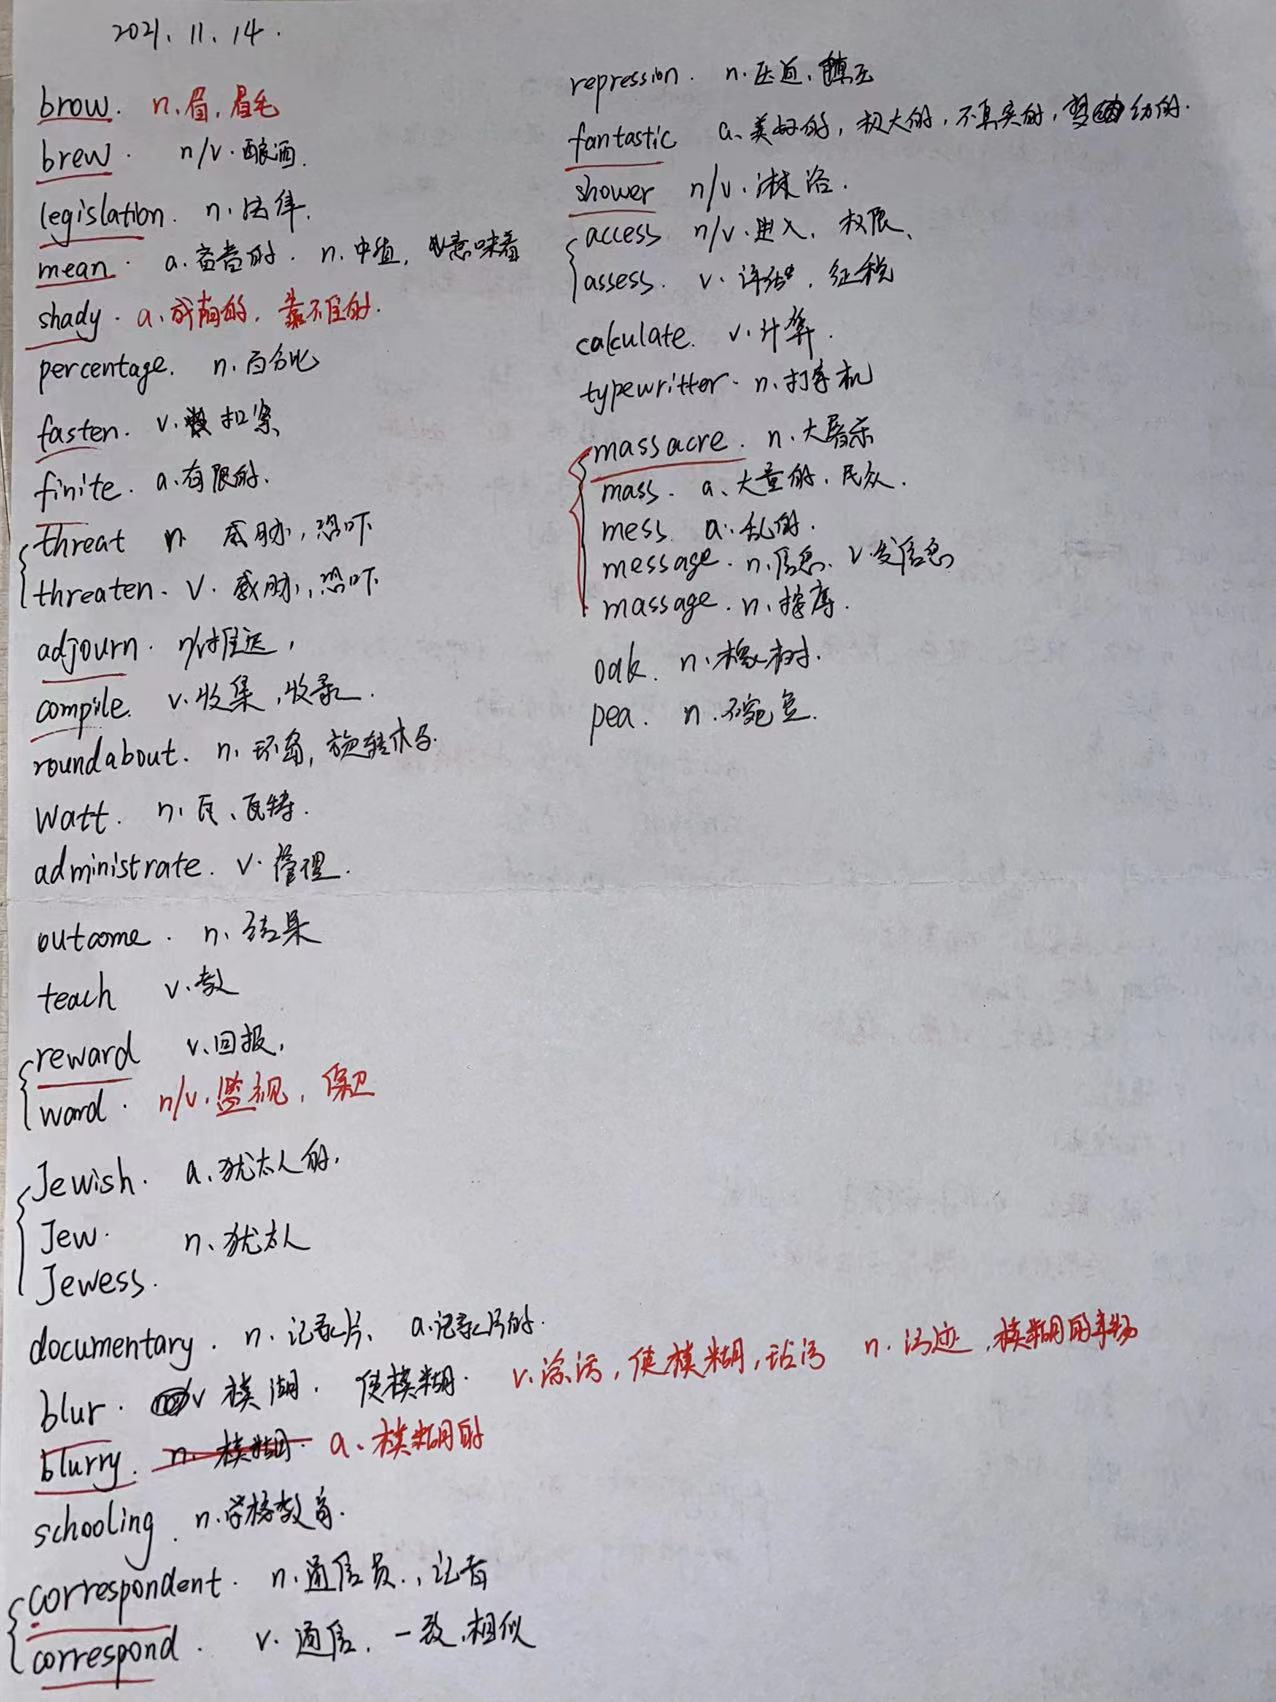 2021.11.14.
brow. n.眉,眉毛
brew. n/v.酿酒.
legislation. n.法律.
mean. a.吝啬的. n.中值, v意味着
shady. a.成荫的, 靠不住的.
percentage. n.百分比
fasten. v.扣紧
finite. a.有限的.
threat n 威胁,恐吓
threaten. v.威胁,恐吓
adjourn. n/v推迟,
compile. v.收集,收录.
roundabout. n.环岛,旋转木马.
watt. n.瓦、瓦特.
administrate. v.管理.
outcome. n.结果
teach v.教
reward v.回报,
ward. n/v.监视, 保卫
Jewish. a.犹太人的.
Jew. n.犹太人
Jewess.
documentary. n.记录片、 a.记录片的.
blur. v 模湖. 使模糊. v.涂污,使模糊,玷污 n.污迹,模糊的事物
blurry. n.模糊. a.模糊的
schooling. n.学校教育.
correspondent. n.通信员.,记者
correspond. v.通信, 一致,相似
repression. n.压迫,镇压
fantastic a.美好的,极大的,不真实的,幻的.
shower n/v.淋浴.
access n/v.进入, 权限、
assess. v.评估, 征税
calculate. v.计算.
typewritter. n.打字机
massacre. n.大屠杀
mass. a.大量的.民众.
mess. a.乱的.
message. n.信息. v.发信息
massage. n.按摩.
oak. n.橡树.
pea. n.豌豆.